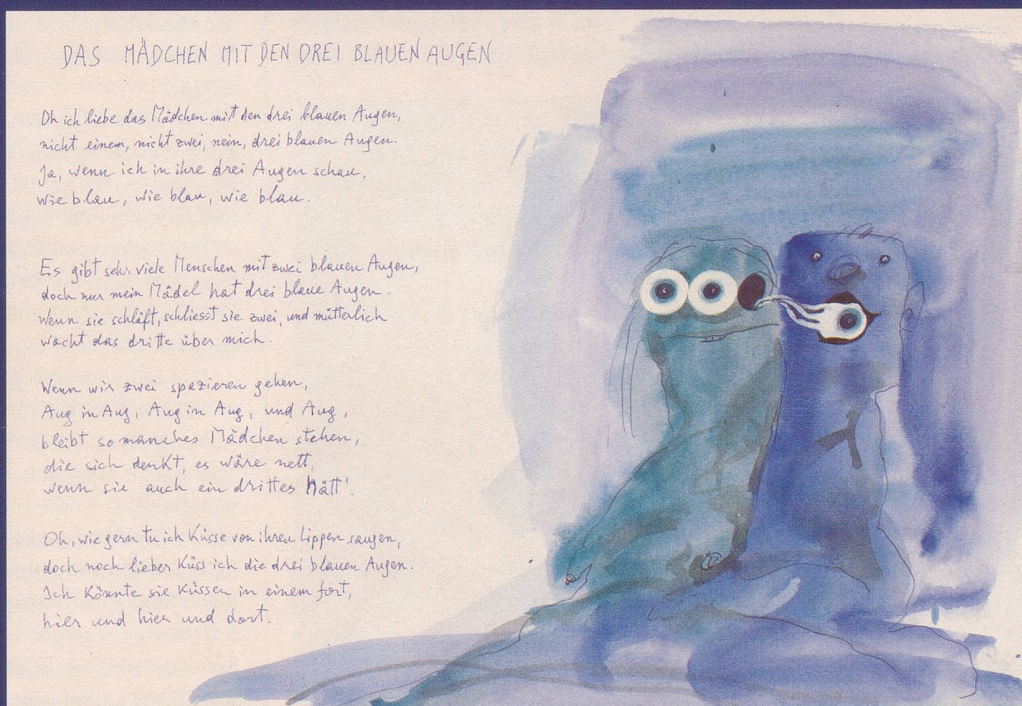 DAS MÄDCHEN MIT DEN DREI BLAUEN AUGEN
Oh ich liebe das Mädchen mit den drei blauen Augen,
nicht einem, nicht zwei, nein, drei blauen Augen.
Ja, wenn ich in ihre drei Augen schau,
wie blau, wie blau, wie blau.
Es gibt sehr viele Menschen mit zwei blauen Augen,
doch nur mein Mädel hat drei blaue Augen.
Wenn sie schläft, schliesst sie zwei, und mütterlich
wacht das dritte über mich.
Wenn wir zwei spazieren gehen,
Aug in Aug, Aug in Aug, und Aug,
bleibt so manches Mädchen stehen,
die sich denkt, es wäre nett,
wenn sie auch ein drittes hätt'.
Oh, wie gern tu ich Küsse von ihren Lippen saugen,
doch noch lieber küss ich die drei blauen Augen.
Ich könnte sie küssen in einem fort,
hier und hier und dort.